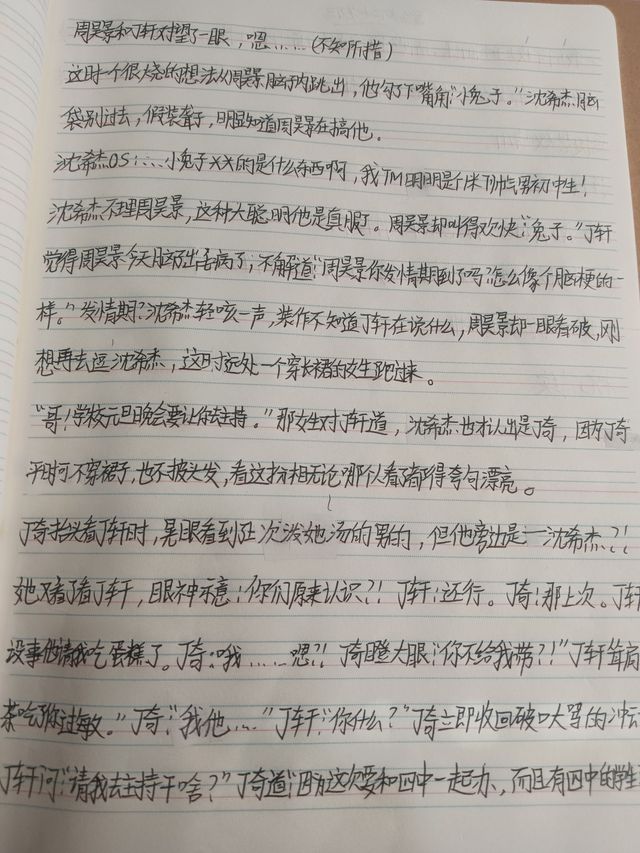 周昊景和丁轩对望了一眼，嗯……（不知所措）
这时一个很烧的想法从周昊景脑子内跳出，他勾了下嘴角：“小兔子。”沈希杰脑
袋别过去，假装聋子，明显知道周昊景在搞他。
沈希杰OS：…小兔子××的是什么东西啊，我TM明明是个米帅气男初中生！
沈希杰不理周昊景，这种大聪明他是真服了。周昊景却叫得欢快：“兔子。”丁轩
觉得周昊景今天脑子出毛病了，不解道：“周昊景你发情期到了吗？怎么像个脑梗的一
样。”发情期？沈希杰轻咳一声，装作不知道丁轩在说什么，周昊景却一眼看破，刚
想再去逗沈希杰，这时远处一个穿长裙的女生跑过来。
“哥！学校元旦晚会要让你去主持。”那女生对丁轩道，沈希杰也才认出是丁奇，因为丁奇
平时可不穿裙子，也不披头发，看这扮相无论哪个人看了都得夸句漂亮。
丁奇抬头看丁轩时，晃眼看到上次泼她汤的男的，但他旁边是…沈希杰？！
她又看了看丁轩，眼神示意：你们原来认识？！丁轩：还行。丁奇：那上次。丁轩
没事他请我吃蛋糕了。丁奇：哦……嗯？！丁奇瞪大眼：“你不给我带？！”丁轩耸肩
茶吃了你过敏。”丁奇：“我他…”丁轩：“你什么？”丁奇立即收回破口大骂的冲
丁轩问：“请我去主持干啥？”丁奇道：“因为这次要和四中一起办，而且有四中的学生